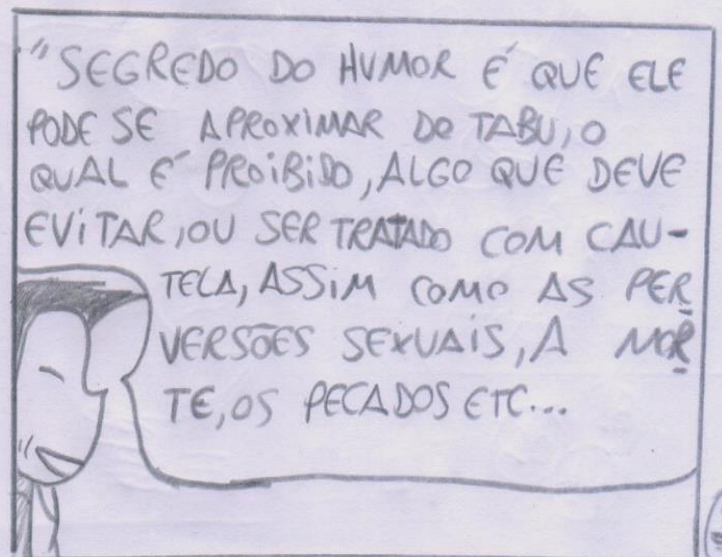 "SEGREDO DO HUMOR É QUE ELE
PODE SE APROXIMAR DO TABU, O
QUAL É PROIBIDO, ALGO QUE DEVE
EVITAR, OU SER TRATADO COM CAU-
TELA, ASSIM COMO AS PER
VERSÕES SEXUAIS, A MOR
TE, OS PECADOS ETC...